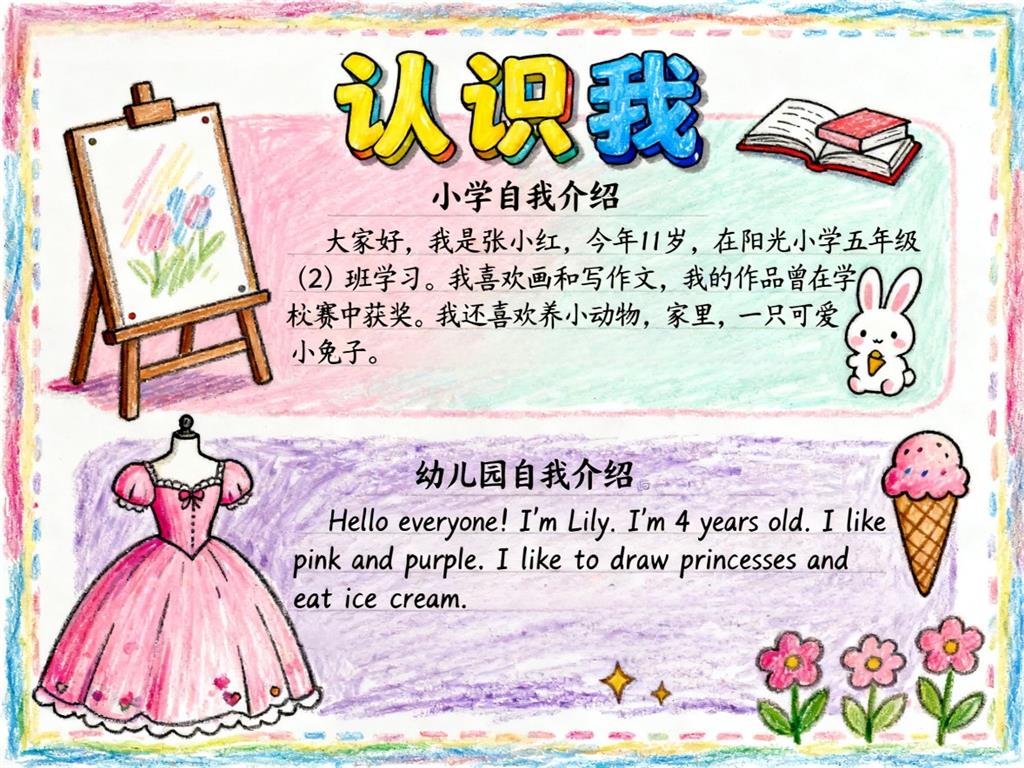 认识我
小学自我介绍
大家好，我是张小红，今年11岁，在阳光小学五年级
（2）班学习。我喜欢画和写作文，我的作品曾在学
校赛中获奖。我还喜欢养小动物，家里，一只可爱
小兔子。
幼儿园自我介绍
Hello everyone! I'm Lily. I'm 4 years old. I like
pink and purple. I like to draw princesses and
eat ice cream.